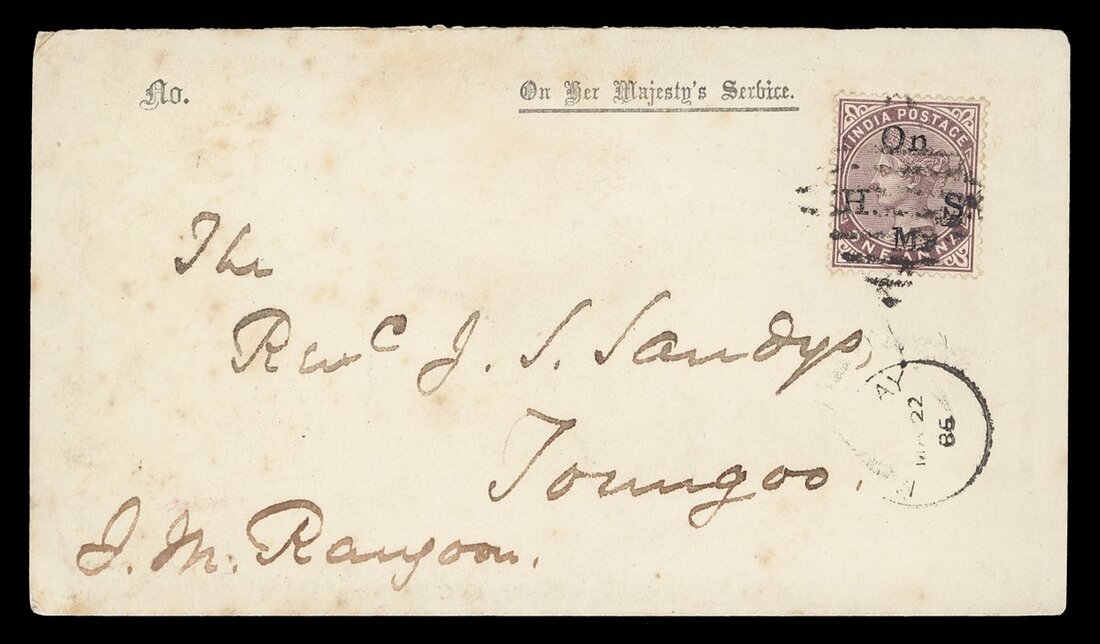 No.
On Her Majesty's Service.
INDIA POSTAGE
On
H. S.
My
ONE ANNA
The
Revd J. S. Sandys,
Toungoo.
22
86
J. M. Rangoon.